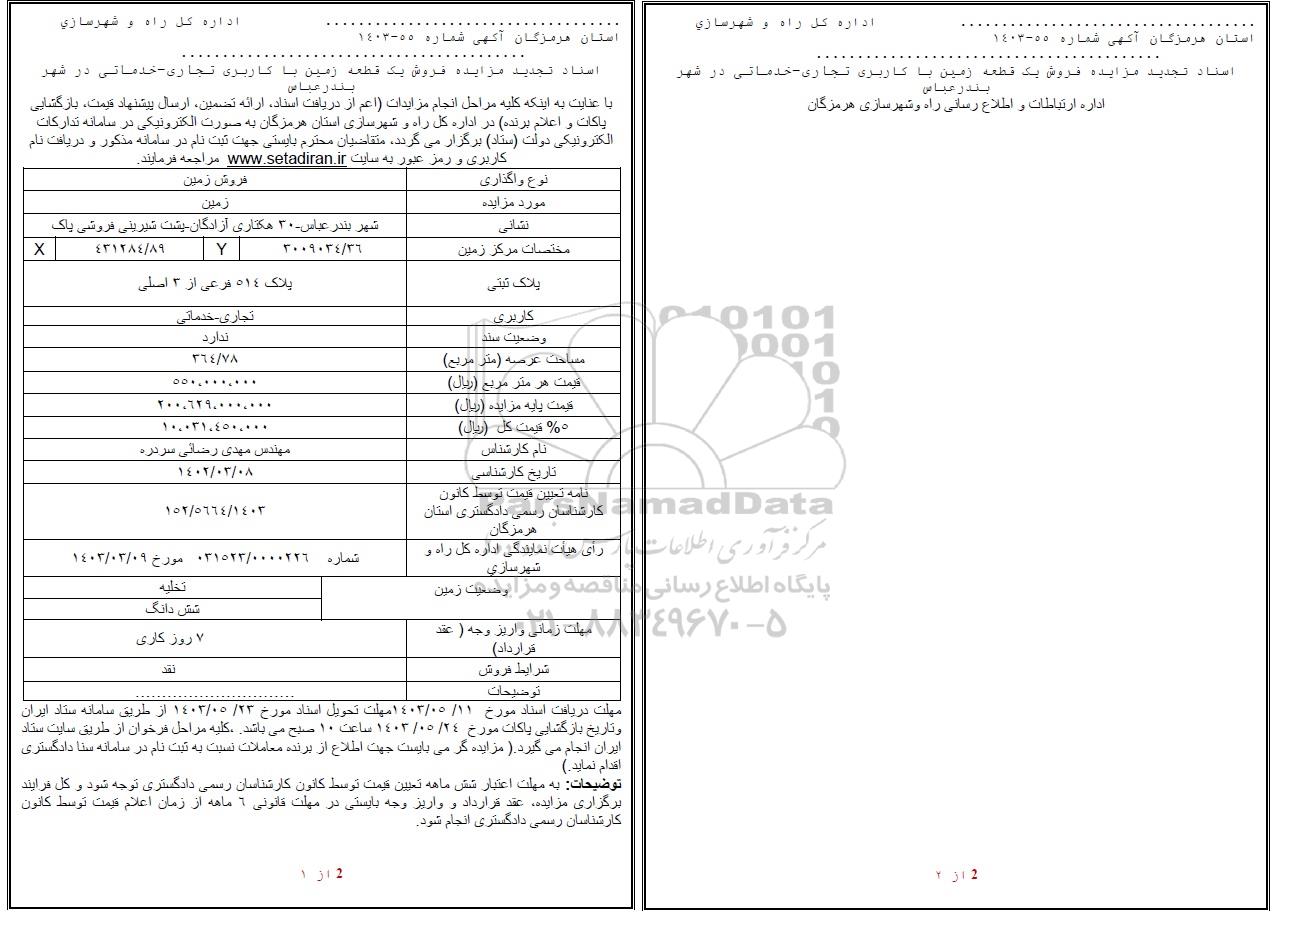 اداره کل راه و شهرسازي ....................................
استان هرمزگان آگهی شماره ۵۵-۱۴۰۳
..........................................
اسناد تجدید مزایده فروش یک قطعه زمین با کاربری تجاری-خدماتی در شهر
بندرعباس
با عنایت به اینکه کلیه مراحل انجام مزایدات (اعم از دریافت اسناد، ارائه تضمین، ارسال پیشنهاد قیمت، بازگشایی
پاکات و اعلام برنده) در اداره کل راه و شهرسازی استان هرمزگان به صورت الکترونیکی در سامانه تدارکات
الکترونیکی دولت (ستاد) برگزار می گردد، متقاضیان محترم بایستی جهت ثبت نام در سامانه مذکور و دریافت نام
کاربری و رمز عبور به سایت www.setadiran.ir مراجعه فرمایند.
نوع واگذاری فروش زمین
مورد مزایده زمین
نشانی شهر بندرعباس-۳۰ هکتاری آزادگان-پشت شیرینی فروشی پاک
مختصات مرکز زمین ۳۰۰۹۰۳٤/۳٦ Y ٤۳۱۲۸٤/۸۹ X
پلاک ثبتی پلاک ٥۱٤ فرعی از ۳ اصلی
کاربری تجاری-خدماتی
وضعیت سند ندارد
مساحت عرصه (متر مربع) ۳٦٤/۷۸
قیمت هر متر مربع (ریال) ٥٥۰،۰۰۰،۰۰۰
قیمت پایه مزایده (ریال) ۲۰۰،٦۲۹،۰۰۰،۰۰۰
٥% قیمت کل (ریال) ۱۰،۰۳۱،٤٥۰،۰۰۰
نام کارشناس مهندس مهدی رضائی سردره
تاریخ کارشناسی ۱٤۰۲/۰۳/۰۸
نامه تعیین قیمت توسط کانون
کارشناسان رسمی دادگستری استان
هرمزگان
۱٥۲/٥٦٦٤/۱٤۰۳
رأی هیأت نمایندگی اداره کل راه و
شهرسازي
شماره ۰۳۱٥۲۳/۰۰۰۰۲۲٦ مورخ ۱٤۰۳/۰۳/۰۹
وضعیت زمین تخلیه
شش دانگ
مهلت زمانی واریز وجه ( عقد
قرارداد)
۷ روز کاری
شرایط فروش نقد
توضیحات ..............................
مهلت دریافت اسناد مورخ ۱۱/ ۱٤۰۳/۰٥مهلت تحویل اسناد مورخ ۲۳/ ۱٤۰۳/۰٥ از طریق سامانه ستاد ایران
وتاریخ بازگشایی پاکات مورخ ۲٤/ ۰٥/ ۱٤۰۳ ساعت ۱۰ صبح می باشد. ،کلیه مراحل فرخوان از طریق سایت ستاد
ایران انجام می گیرد.( مزایده گر می بایست جهت اطلاع از برنده معاملات نسبت به ثبت نام در سامانه سنا دادگستری
اقدام نماید.)
توضیحات: به مهلت اعتبار شش ماهه تعیین قیمت توسط کانون کارشناسان رسمی دادگستری توجه شود و کل فرایند
برگزاری مزایده، عقد قرارداد و واریز وجه بایستی در مهلت قانونی ٦ ماهه از زمان اعلام قیمت توسط کانون
کارشناسان رسمی دادگستری انجام شود.
2 از ۱
اداره کل راه و شهرسازي ....................................
استان هرمزگان آگهی شماره ۵۵-۱۴۰۳
..........................................
اسناد تجدید مزایده فروش یک قطعه زمین با کاربری تجاری-خدماتی در شهر
بندرعباس
اداره ارتباطات و اطلاع رسانی راه وشهرسازی هرمزگان
2 از ۲
ParsNamadData
پایگاه اطلاع رسانی مناقصه و مزایده
۰۲۱-۸۸۳٤۹٦۷۰-٥